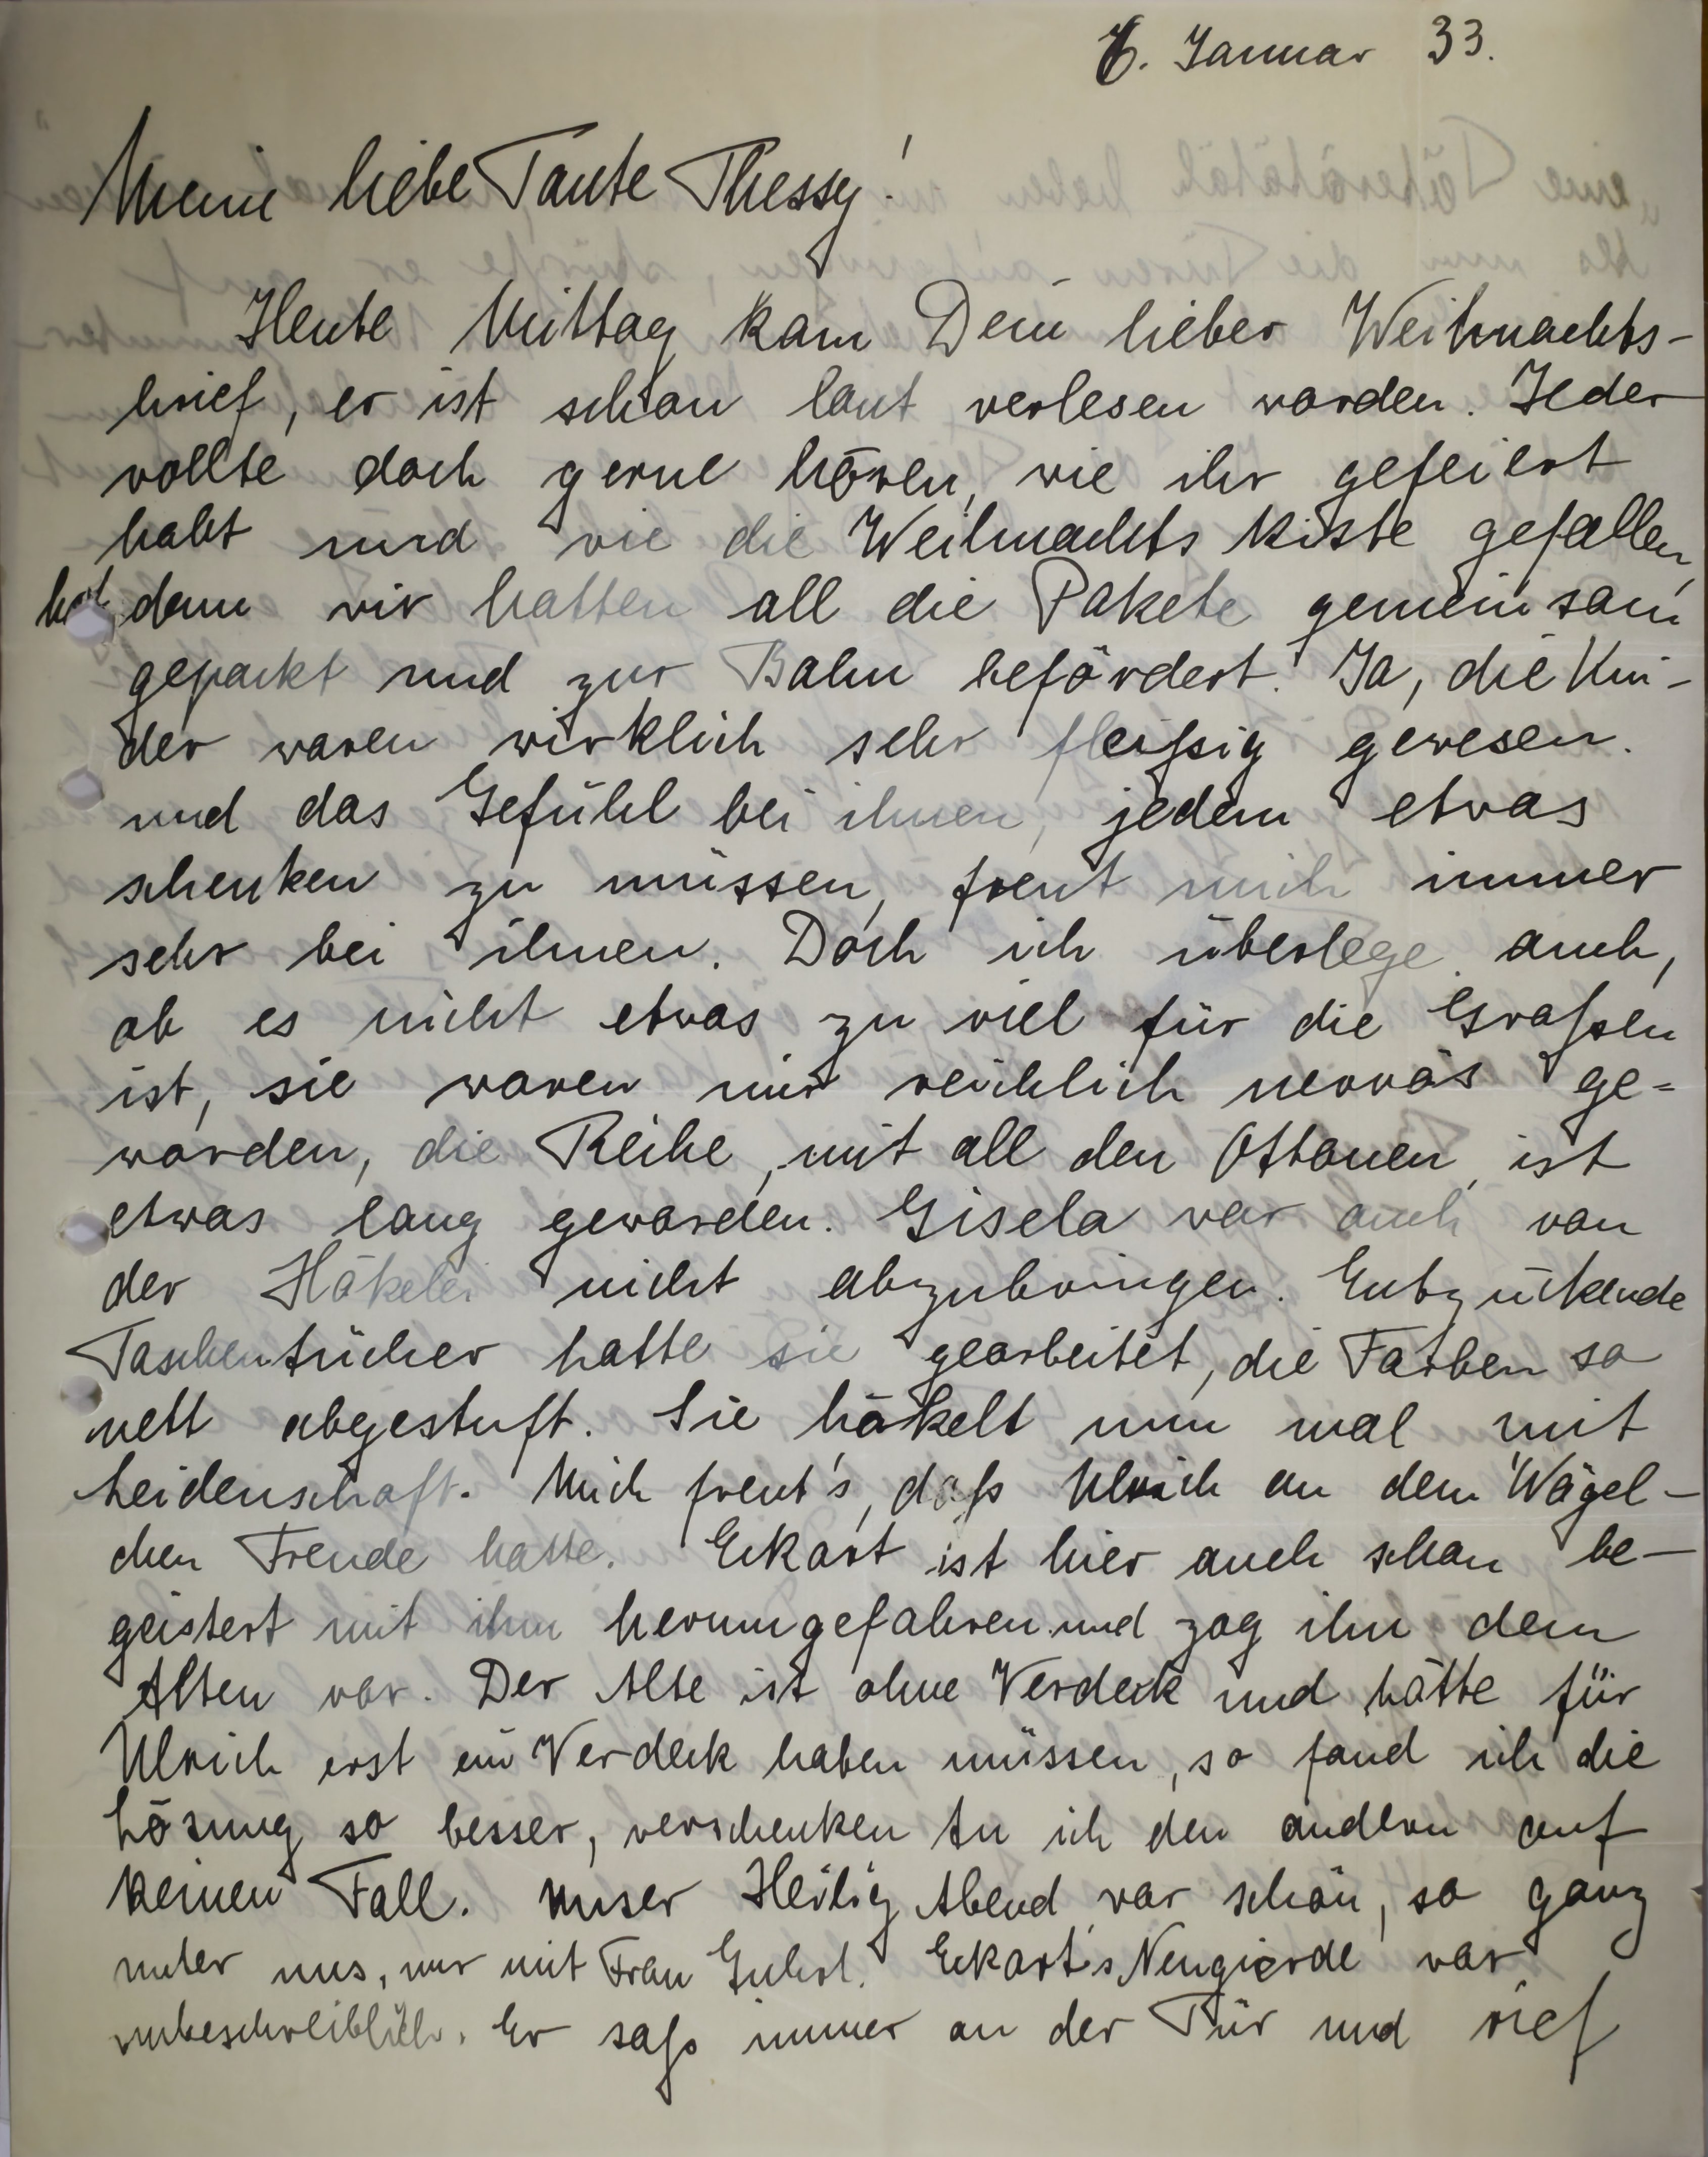 6. Januar 33.
Meine liebe Tante Thessy!
Heute Mittag kam Dein lieber Weihnachts-
brief, er ist schon laut verlesen worden. Jeder
wollte doch gerne hören, wie ihr gefeiert
habt und wie die Weihnachts kiste gefallen
hat, denn wir hatten all die Pakete gemeinsam
gepackt und zur Bahn befördert. Ja, die Kin-
der waren wirklich sehr fleißig gewesen.
und das Gefühl bei ihnen, jedem etwas
schenken zu müssen, freut mich immer
sehr bei ihnen. Doch ich überlege auch,
ob es nicht etwas zu viel für die Großen
ist, sie waren mir reichlich nervös ge-
worden, die Reihe, mit all den Ottonen, ist
etwas lang geworden. Gisela war auch von
der Häkelei nicht abzubringen. Entzückende
Taschentücher hatte sie gearbeitet, die Farben so
nett abgestuft. Sie häkelt nun mal mit
Leidenschaft. Mich freut's, daß Ulrich an dem Wägel-
chen Freude hatte. Eckart ist hier auch schon be-
geistert mit ihm herumgefahren und zog ihn dem
Alten vor. Der Alte ist ohne Verdeck und hätte für
Ulrich erst ein Verdeck haben müssen, so fand ich die
Lösung so besser, verschenken tu ich den andern auf
keinen Fall. Unser Heilig Abend war schön, so ganz
unter uns, nur mit Frau. Eckart's Neugierde war
unbeschreiblich. Er saß immer an der Tür und rief